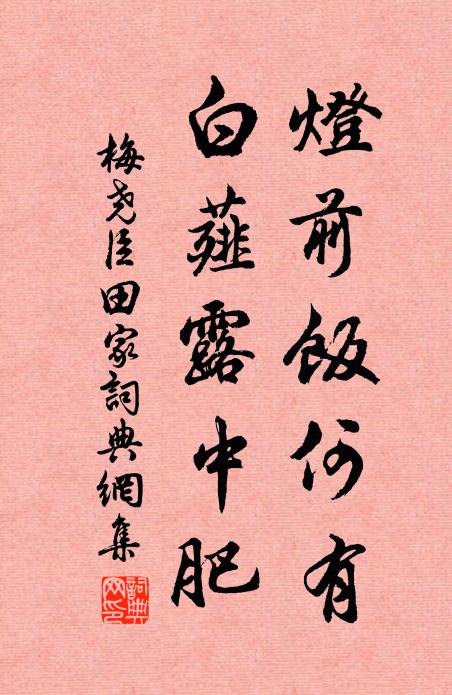 燈前飯何有
白薤露中肥
梅堯臣田家詞典網集
詞典网印